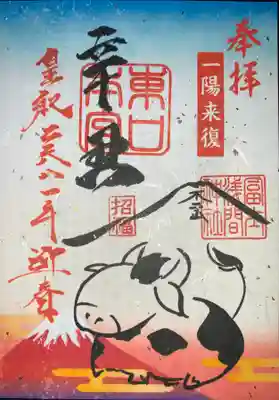 奉拝
一陽来復
冨士
浅間
神社
東口
本宮
辛丑
招福
皇紀二六八一年迎春